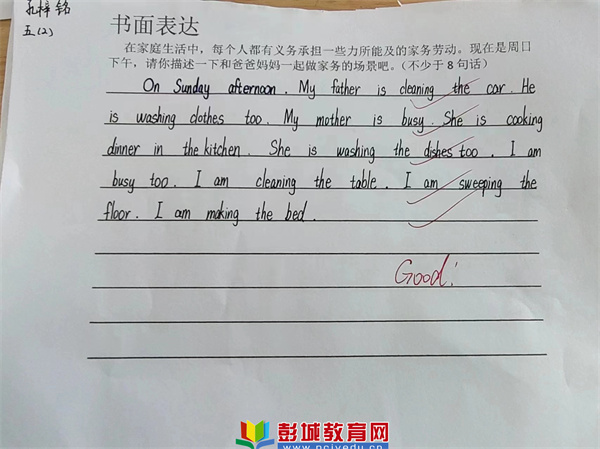 孔梓铭
五(2)
书面表达
在家庭生活中，每个人都有义务承担一些力所能及的家务劳动。现在是周日
下午，请你描述一下和爸爸妈妈一起做家务的场景吧。（不少于8句话）
On Sunday afternoon. My father is cleaning the car. He
is washing clothes too. My mother is busy. She is cooking
dinner in the kitchen. She is washing the dishes too. I am
busy too. I am cleaning the table. I am sweeping the
floor. I am making the bed.
Good!
彭城教育网
www.pcjyedu.cn